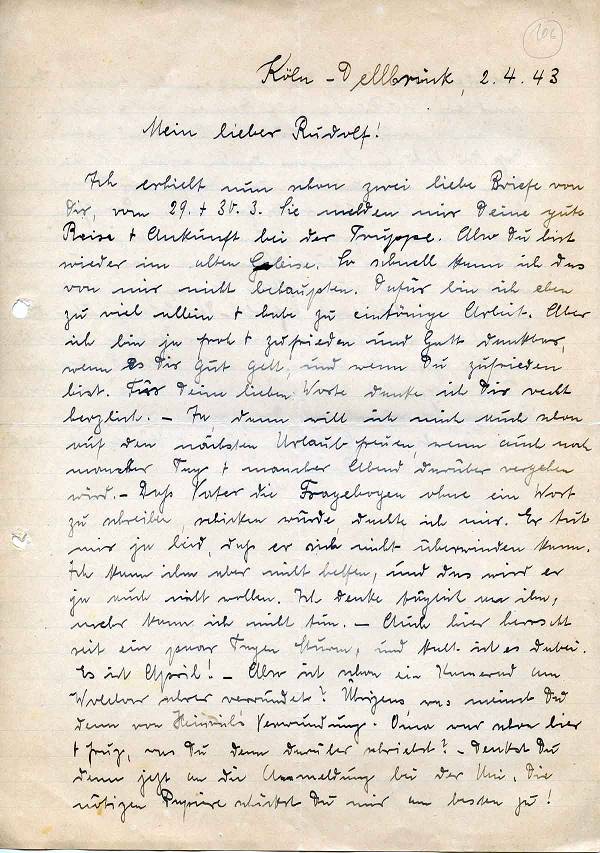 106
Köln - Dellbrück, 2.4.43
Mein lieber Rudolf!
Ich erhielt nun schon zwei liebe Briefe von
Dir, vom 29. + 30.3. Sie melden mir Deine gute
Reise + Ankunft bei der Truppe. Also Du bist
wieder im alten Geleise. So schnell kann ich das
von mir nicht behaupten. Dafür bin ich eben
zu viel allein + habe zu eintönige Arbeit. Aber
ich bin ja froh + zufrieden und Gott dankbar,
wenn es Dir gut geht, und wenn Du zufrieden
bist. Für Deine lieben Worte danke ich Dir recht
herzlich. - Ja, dann will ich mich auch schon
auf den nächsten Urlaub freuen, wenn auch noch
mancher Tag + mancher Abend darüber vergehen
wird. - Daß Vater die Fragebogen ohne ein Wort
zu schreiben, schicken würde, dachte ich mir. Er tut
mir ja leid, daß er sich nicht überwinden kann.
Ich kann ihm aber nicht helfen, und das wird er
ja auch nicht wollen. Ich denke täglich an ihn,
mehr kann ich nicht tun. - Auch hier herrscht
seit ein paar Tagen Sturm, und kalt ist es dabei.
Es ist April! - Also ist schon ein Kamerad am
Wolchow schwer verwundet? Übrigens, was meinst Du
denn von Heinrich's Verwundung. Oma war schon hier
+ frug, was Du denn darüber schriebst? - Denkst Du
denn jetzt an die Anmeldung bei der Uni. Die
nötigen Papiere schickst Du mir am besten zu!